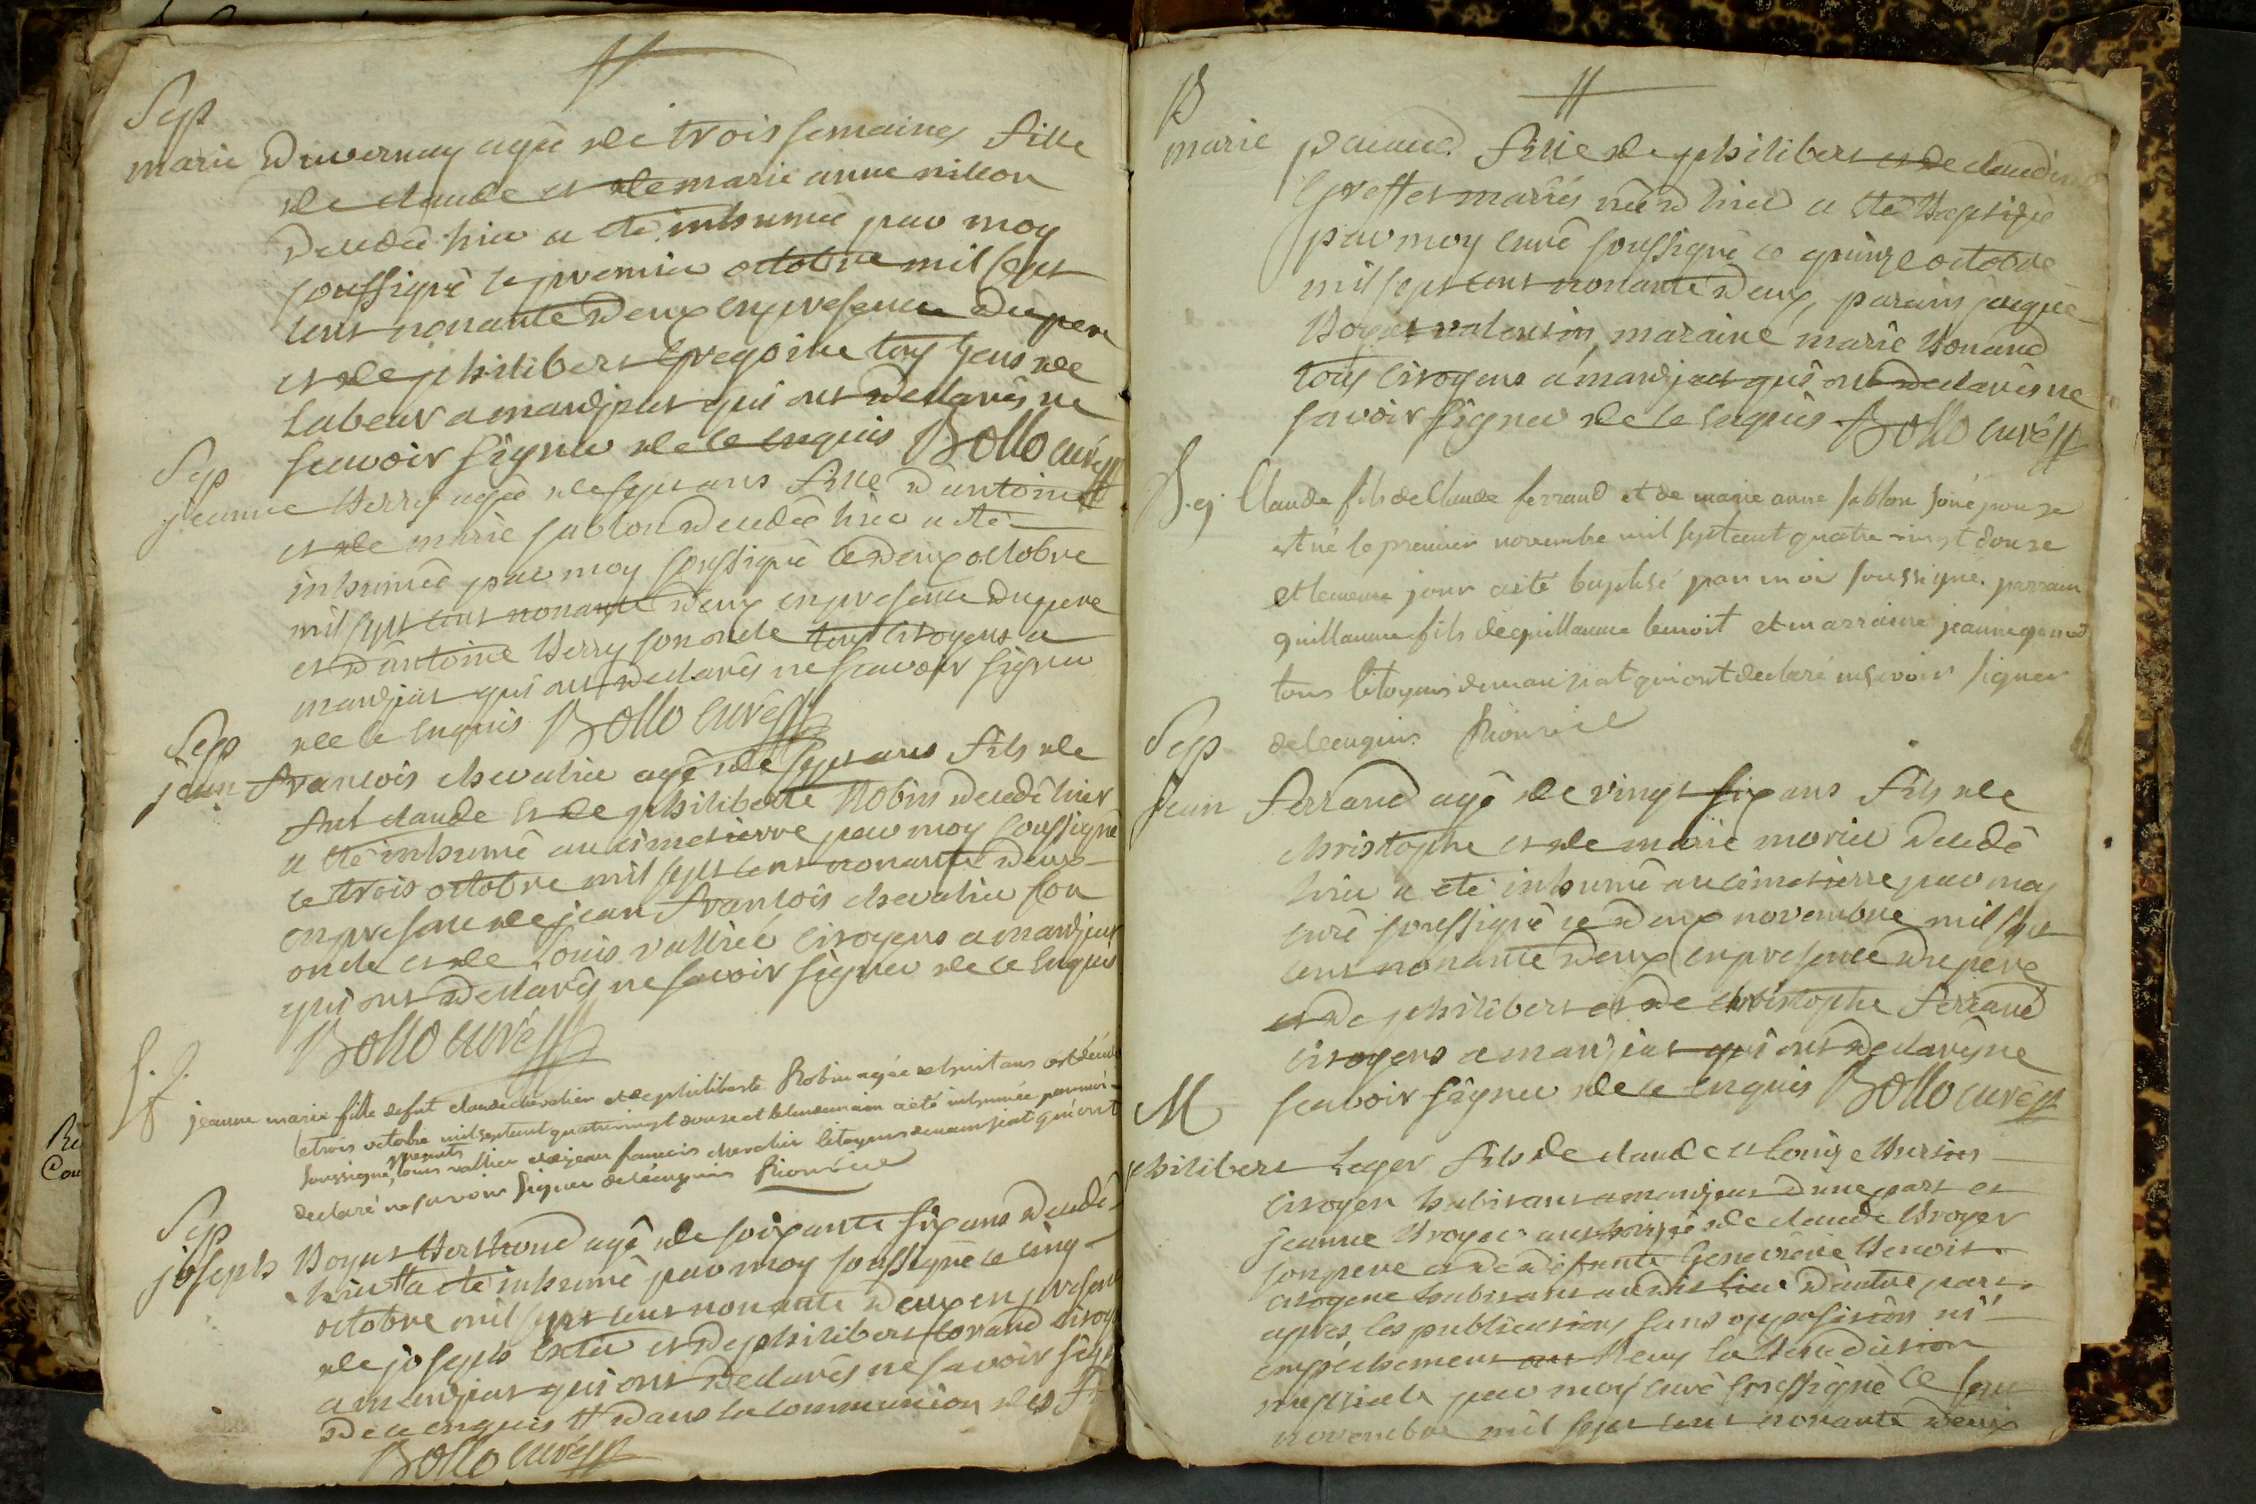 Sep
marie Duvernay agée de trois semaines fille
de claude et de marie anne nillon
decedée hier a eté inhumée par moy
soussigné le premier octobre mil sept
cent nonante deux en presence du pere
et de philibert gregoire tous gens de
labeur a manziat qui ont declarés ne
scavoir signer de ce enquis Bollo curé
Sep
jeanne Herry agée de sept ans fille d'antoine
et de marie sablon decedée hier a eté
inhumée par moy soussigné le deux octobre
mil sept cent nonante deux en presence du pere
et d'antoine Herry son oncle tous citoyens a
manziat qui ont declarés ne scavoir signer
de ce enquis Bollo curé
Sep
jean francois chevalier agé de sept ans fils de
fut claude et de philiberte Robin decedé hier
a eté inhumé au cimetierre par moy soussigné
le trois octobre mil sept cent nonante deux
en presence de jean francois chevalier son
oncle et de Louis vallier citoyens a manziat
qui ont declarés ne scavoir signer de ce enquis
Bollo curé
S.
jeanne marie fille de fut claude chevalier et de philiberte Robin agée de huit ans est decedé
le trois octobre mil sept cent quatre vingt douze et le lendemain a eté inhumée par moi
presents
soussigné, louis vallier et de jean francois chevalier citoyens de manziat qui ont
declaré ne savoir signer de ce enquis
Sep
joseph Boyat Bertrand agé de soixante six ans decedé
hier a eté inhumé par moy soussigné le cinq
octobre mil sept cent nonante deux en presence
de joseph et de philibert citoy
a manziat qui ont declarés ne savoir sign
de ce enquis dans la communion des f
Bollo curé
B
marie fille de philibert et de claudine
greffet mariés née d'hier a eté Baptisée
par moy curé soussigné ce quinze octobre
mil sept cent nonante deux, parain jaque
Boyat valentin, maraine marie
tous citoyens a manziat qui ont declarés ne
savoir signer de ce enquis Bollo curé
Claude fils de Claude ferrand et de marie anne sablon son épouse
est né le premier novembre mil sept cent quatre vingt douze
et le meme jour a eté baptisé par moi soussigné. parrain
guillaume fils de guillaume benoit et marraine jeanne
tous Citoyens de manziat qui ont declaré ne savoir signer
de ce enquis
Sep
jean ferrand agé de vingt six ans fils de
christophe et de marie morier decedé
hier a eté inhumé au cimetierre par moy
curé soussigné ce deux novembre mil sept
cent nonante deux en presence du pere
et de philibert et de christophe ferrand
citoyens a manziat qui ont declarés ne
scavoir signer de ce enquis Bollo curé
M
philibert Leger fils de claude et louise
citoyen habitant a manziat d'une part et
jeanne Broyer authorisée de claude Broyer
son pere et de defunte Genevieve Benoit
citoyene habitant au dit lieu d'autre part
apres les publications sans opposition ni
empechement ont Reçu la Benediction
nuptiale par moy curé soussigné le sept
novembre mil sept cent nonante deux